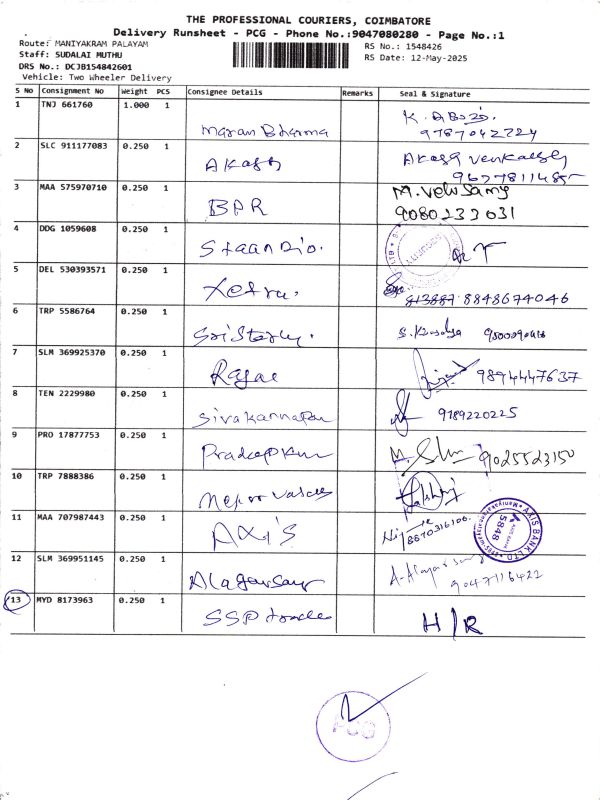 THE PROFESSIONAL COURIERS, COIMBATORE
Delivery Runsheet - PCG - Phone No.:9047080280 - Page No.:1
Route: MANIYAKRAM PALAYAM
RS No.: 1548426
Staff: SUDALAI MUTHU
RS Date: 12-May-2025
DRS No.: DCJB154842601
Vehicle: Two Wheeler Delivery
S No Consignment No Weight PCS Consignee Details Remarks Seal & Signature
1 TNJ 661760 1.000 1
Maran Bharma
9787042724
2 SLC 911177083 0.250 1
Akash Akash Venkatesh
3 MAA 575970710 0.250 1 M. Velusamy
BPR 9080233031
4 DDG 1059608 0.250 1
5 DEL 530393571 0.250 1
8848674046
6 TRP 5586764 0.250 1
7 SLM 369925370 0.250 1
9894447637
8 TEN 2229980 0.250 1
9789220225
9 PRO 17877753 0.250 1
Pradeep Kum 9025523150
10 TRP 7888386 0.250 1
11 MAA 707987443 0.250 1
AXIS 8870316106
AXIS BANK LTD
5848
12 SLM 369951145 0.250 1
9047116422
13 MYD 8173963 0.250 1
SSP trades H/R
PCG